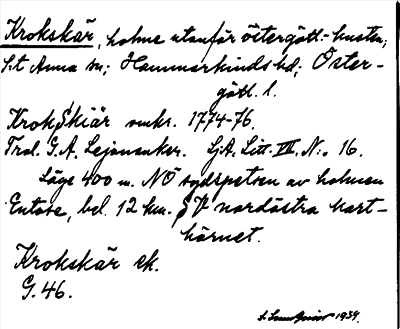 Krokskär, holme utanför östergötl.-kusten;
S:t Anna sn; Hammarkinds hd; Öster-
götl. l.
KrokSkiär omkr. 1774-76.
Trol. G.A. Lejonanker. Sj.A. Litt. VII, N:o 16.
Läge 400 m. NÖ sydspetsen av holmen
Entose, bel. 12 km. SV nordöstra kart-
hörnet.
Krokskär ek.
G. 46.
1934.